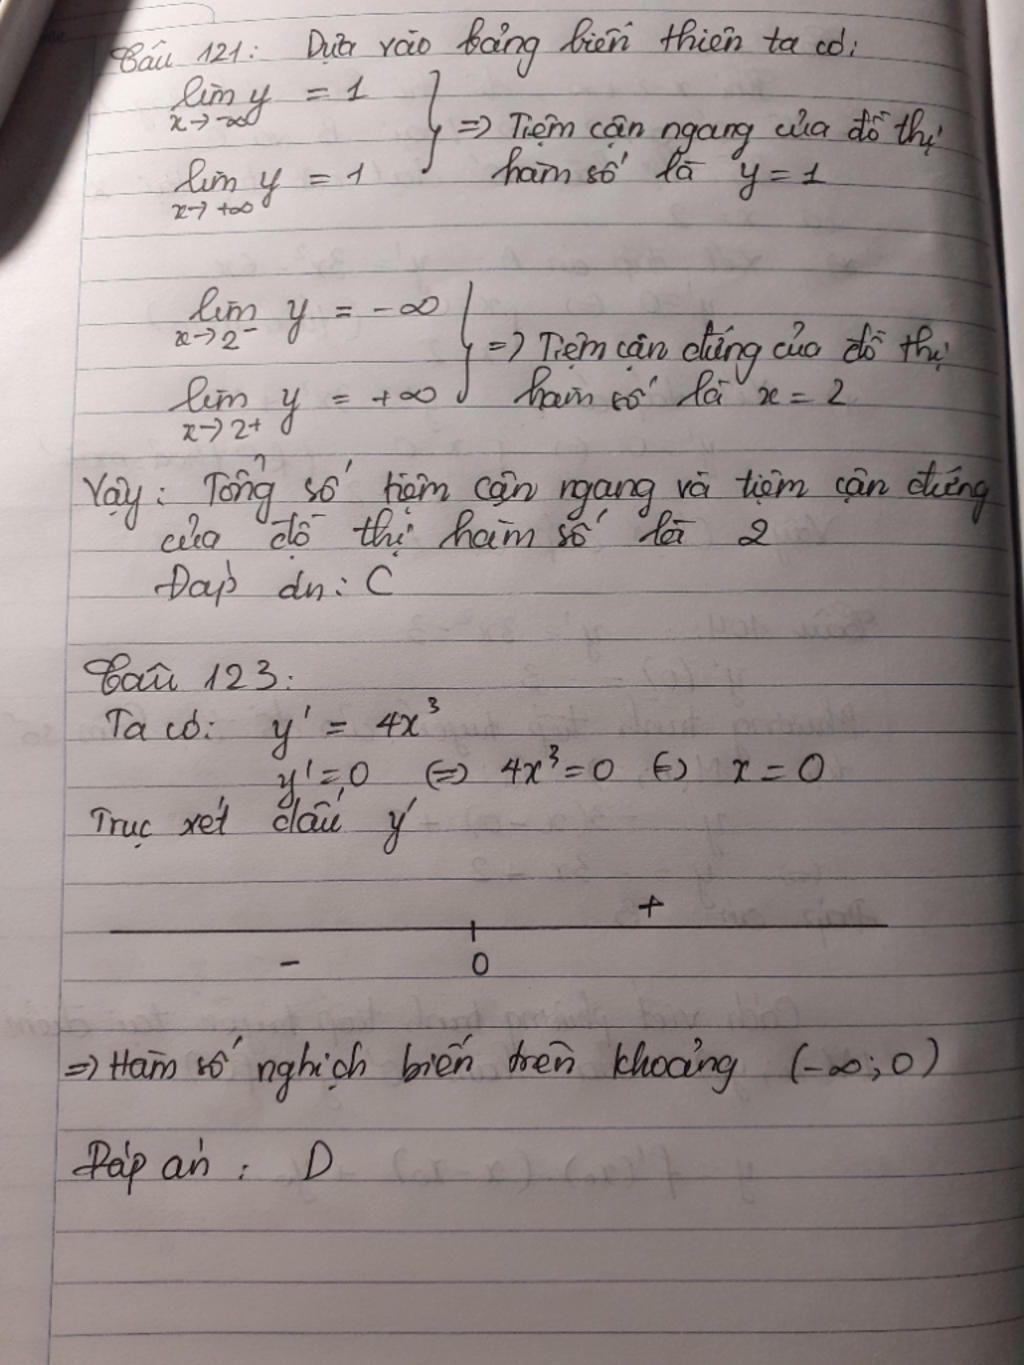 Câu 121: Dựa vào bảng biến thiên ta có:
lim y = 1
x→-∞
=> Tiệm cận ngang của đồ thị
lim y = 1 hàm số là y = 1
x→+∞
lim y = -∞
x→2⁻
=> Tiệm cận đứng của đồ thị
lim y = +∞ hàm số là x = 2
x→2⁺
Vậy: Tổng số tiệm cận ngang và tiệm cận đứng
của đồ thị hàm số là 2
Đáp án: C
Câu 123:
Ta có: y' = 4x³
y'=0 (=) 4x³=0 (=) x = 0
Trục xét dấu y'
+
- 0
=> Hàm số nghịch biến trên khoảng (-∞;0)
Đáp án: D